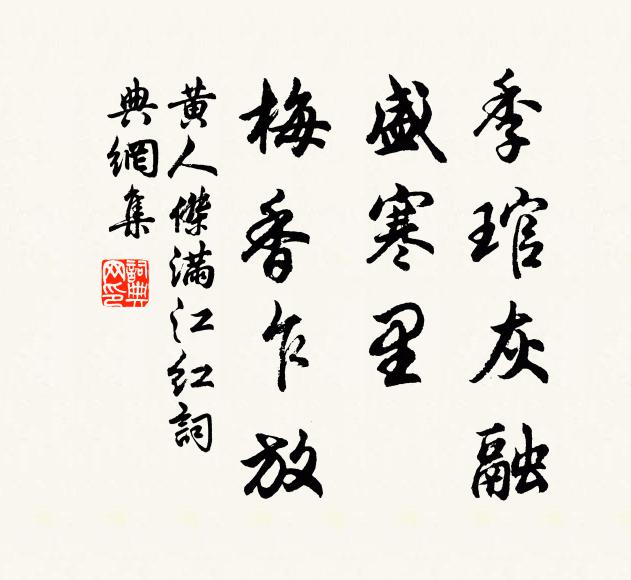 季琯灰融
盛寒里
梅香乍放
黄人傑滿江红詞
典網集
詞典網印